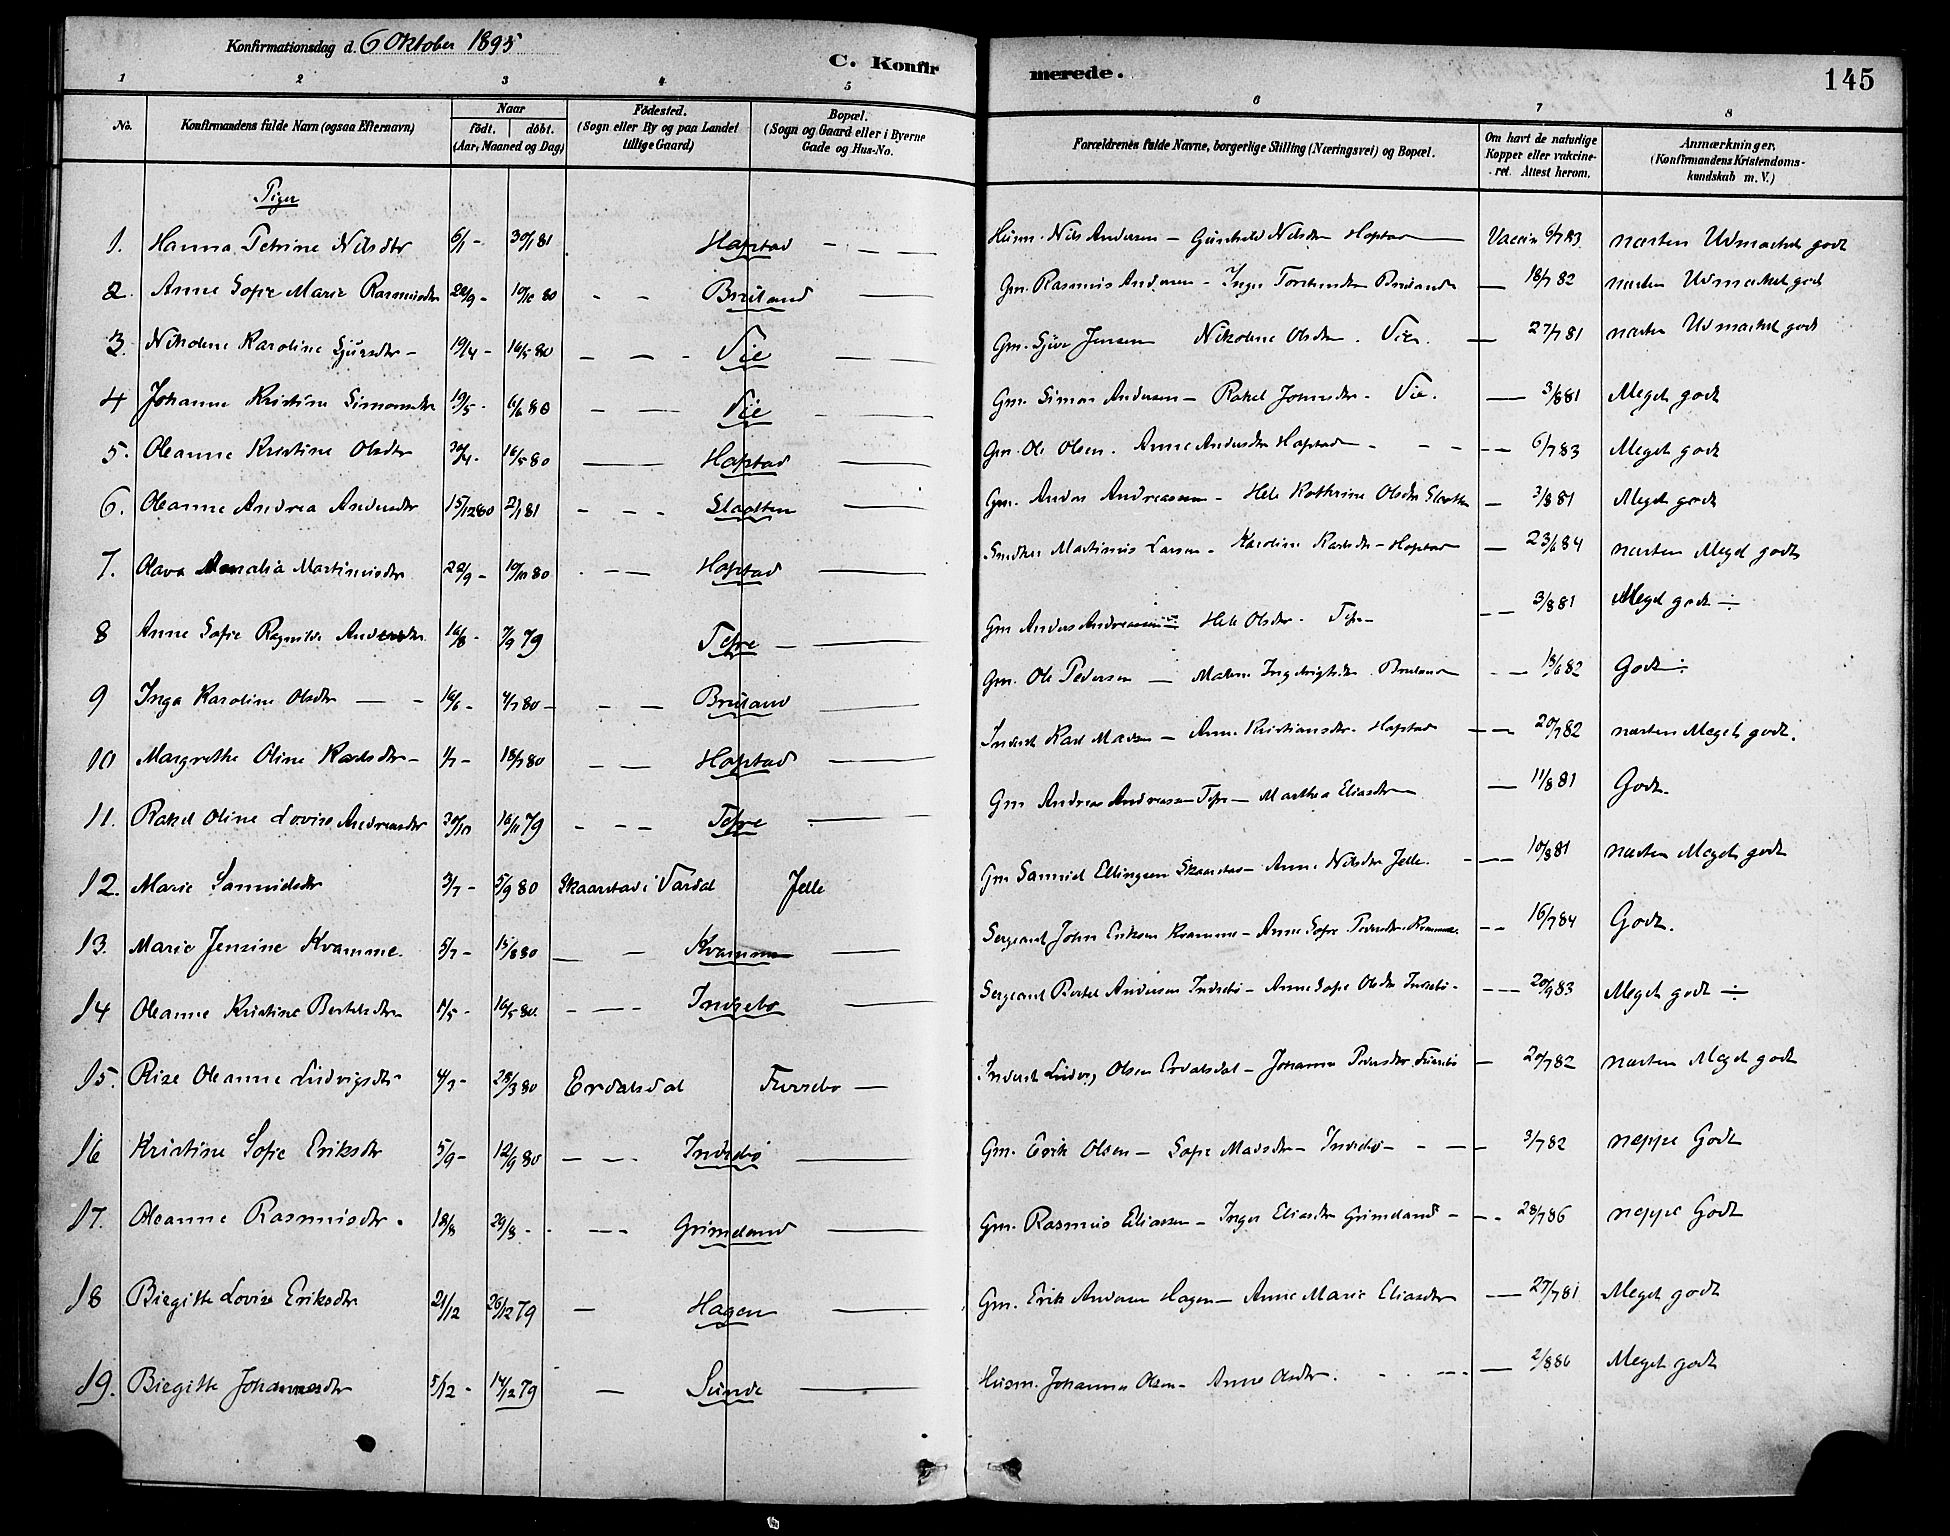 Konfirmationsdag d. 6 Oktober 1895
C. Konfirmerede. 145
1 2 3 4 5 6 7 8
No. Konfirmandens fulde Navn (ogsaa Efternavn) Naar födt. döbt. (Aar, Maaned og Dag) Födested. (Sogn eller By og paa Landet tillige Gaard) Bopæl. (Sogn og Gaard eller i Byerne Gade og Hus-No. Forældrenes fulde Navne, borgerlige Stilling (Næringsvei) og Bopæl. Om havt de naturlige Kopper eller vakcineret. Attest herom. Anmærkninger. (Konfirmandens Kristendomskundskab m. V.)
Piger
1. Hanna Petrine Nilsdtr 6/1 - 30/1 81 Hafstad - - - Husm. Nils Andersen - Gunhild Nilsdtr Hafstad Vaccin 6/7 83 næsten Udmærket godt
2. Anne Sofie Marie Rasmusdtr 22/9 - 10/10 80 - - Bruland — Gm. Rasmus Andersen - Inger Bruland — 18/7 82 næsten Udmærket godt
3. Nikoline Karoline Sjursdtr - 19/4 - 16/5 80 - - - Vie — Gm. Sjur Jensen Nikoline Olsdtr. Vie. — 27/7 81 næsten Udmærket godt
4 Johanne Kristine Simonsdtr 19/5 - 6/6 80 - — Vie - — Gm. Simon Andersen - Rakel Johnsdtr - Vie. — 3/8 81 Meget godt
5. Oleanne Kristine Olsdtr 30/4 - 16/5 80 — Hafstad — Gm. Ole Olsen. Anne Andersdtr Hafstad - - - - 6/7 83 Meget godt
6. Oleanne Andrea Andersdtr 15/12 80 2/1 81 - - - Slaatten — Gm. Anders Andreassen - Hele Kathrine Olsdtr Slaatten — 3/8 81 Meget godt
7. Olava Amalia Martinusdtr 22/9 - 10/10 80 - - — Hafstad — Martinus Larsen - Karoline Karlsdtr - Hafstad — 23/6 84 næsten Meget godt
8 Anne Sofie Ragnilde Andersdtr 16/8 - 7/9 79 Tefre - — Gm Anders Andreassen - Hele Olsdtr - Tefre - - — 3/8 81 Meget godt ÷
9 Inga Karoline Olsdtr — - 16/6 - 4/7 80 - - — Bruland — Gm. Ole Pedersen — Malene Bruland - — 18/6 82 Godt ÷
10 Margrethe Oline Karlsdtr - 1/7 - 18/7 80 - — Hafstad — Inderst Karl Madsen - Anne Kristiansdtr - Hafstad - — 20/7 82 næsten Meget godt.
11. Rakel Oline Lovise Andreasdtr 30/10 16/11 79 - - - Tefre — Gm Andreas Andreassen Tefre - Marthea Eliasdtr — 11/8 81 Godt.
12. Marie Samuelsdtr 3/7 - 5/9 80 Skaarstad i Jelle Gm Samuel Ellingsen Skaarstad - Anne Nilsdtr Jelle. - — 10/8 81 næsten Meget godt
13. Marie Jensine Kvamme. 5/7 - 15/8 80 — - Kvamme — Sergeant John Eriksen Kvamme - Anne Sofie Pedersdtr Kvamme. - - 16/7 84 Godt.
14 Oleanne Kristine Bertelsdtr 1/5 - 16/5 80. - - — Indrebø — Sergeant Bertel Andersen Indrebø - Anne Sofie Olsdtr Indrebø - - - — 20/9 83 Meget godt ÷
15. Rise Oleanne Ludvigsdtr 4/3 - 28/3 80 Erdalsdal Furrebø — Inderst Ludvig Olsen Erdalsdal - Johanne Pedersdtr Furrebø — 20/7 82 næsten Meget godt
16 Kristine Sofie Eriksdtr 5/9 - 12/9 80 - - - Indrebø — Gm. Erik Olsen - Sofie Madsdtr - Indrebø - - — - 3/7 82 neppe Godt
17. Oleanne Rasmusdtr. 18/8 29/8 - - - — Grimeland — Gm. Rasmus Eliassen - Inger Eliasdtr Grimeland - - - 28/7 86 neppe Godt
18 Birgitte Lovise Eriksdtr 21/12 26/12 79 — Hagen — Gm. Erik Andersen Hagen - Anne Marie Eliasdtr — 27/7 81 Meget godt
19. Birgitte Johannesdtr 5/12 - 14/12 79 — Sunde — Husm. Johannes Olsen - Anne Olsdtr. - - - - — 2/8 86 Meget godt